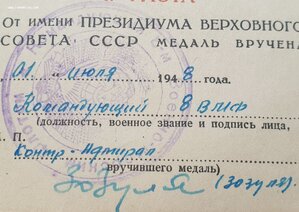 От имени ПРЕЗИДИУМА ВЕРХОВНОГО
СОВЕТА СССР МЕДАЛЬ ВРУЧЕНА
01 " июля 1948 года.
Командующий 8 ВМФ
(должность, военное звание и подпись лица,
П.
Контр-Адмирал
вручившего медаль)
Зозуля (Зозуля).